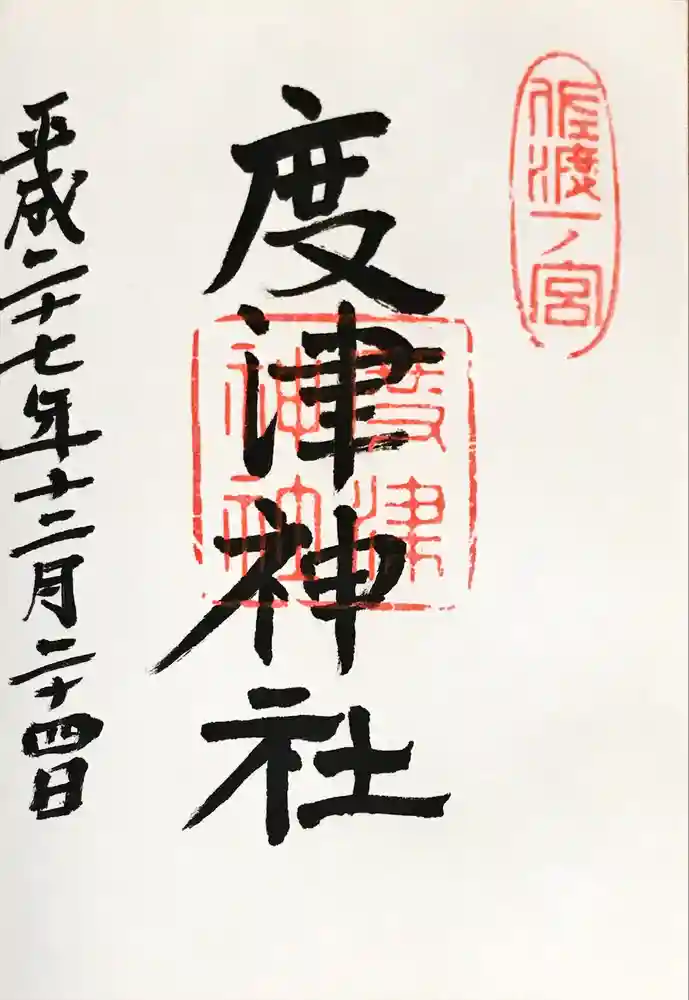 佐渡一ノ宮
度津神社
度津
神社
平成二十七年十二月二十四日